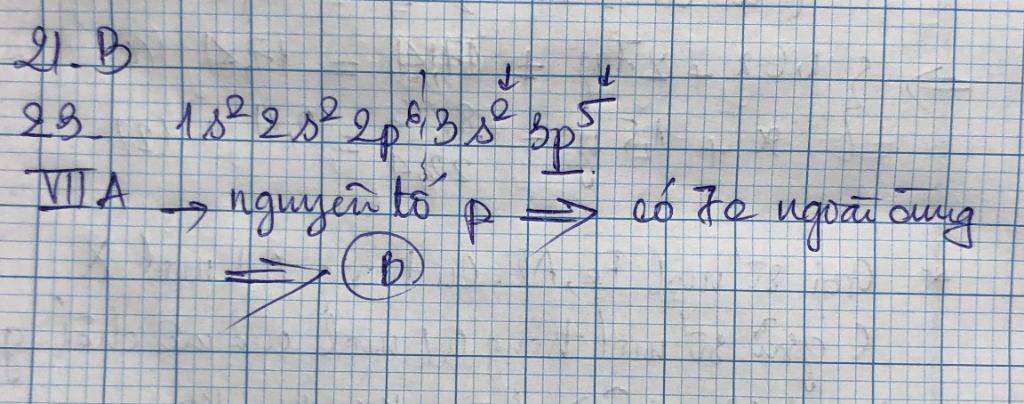 21. B
23. 1s² 2s² 2p⁶ 3s² 3p⁵
VII A → nguyên tố p ⇒ có 7e ngoài cùng
⇒ B